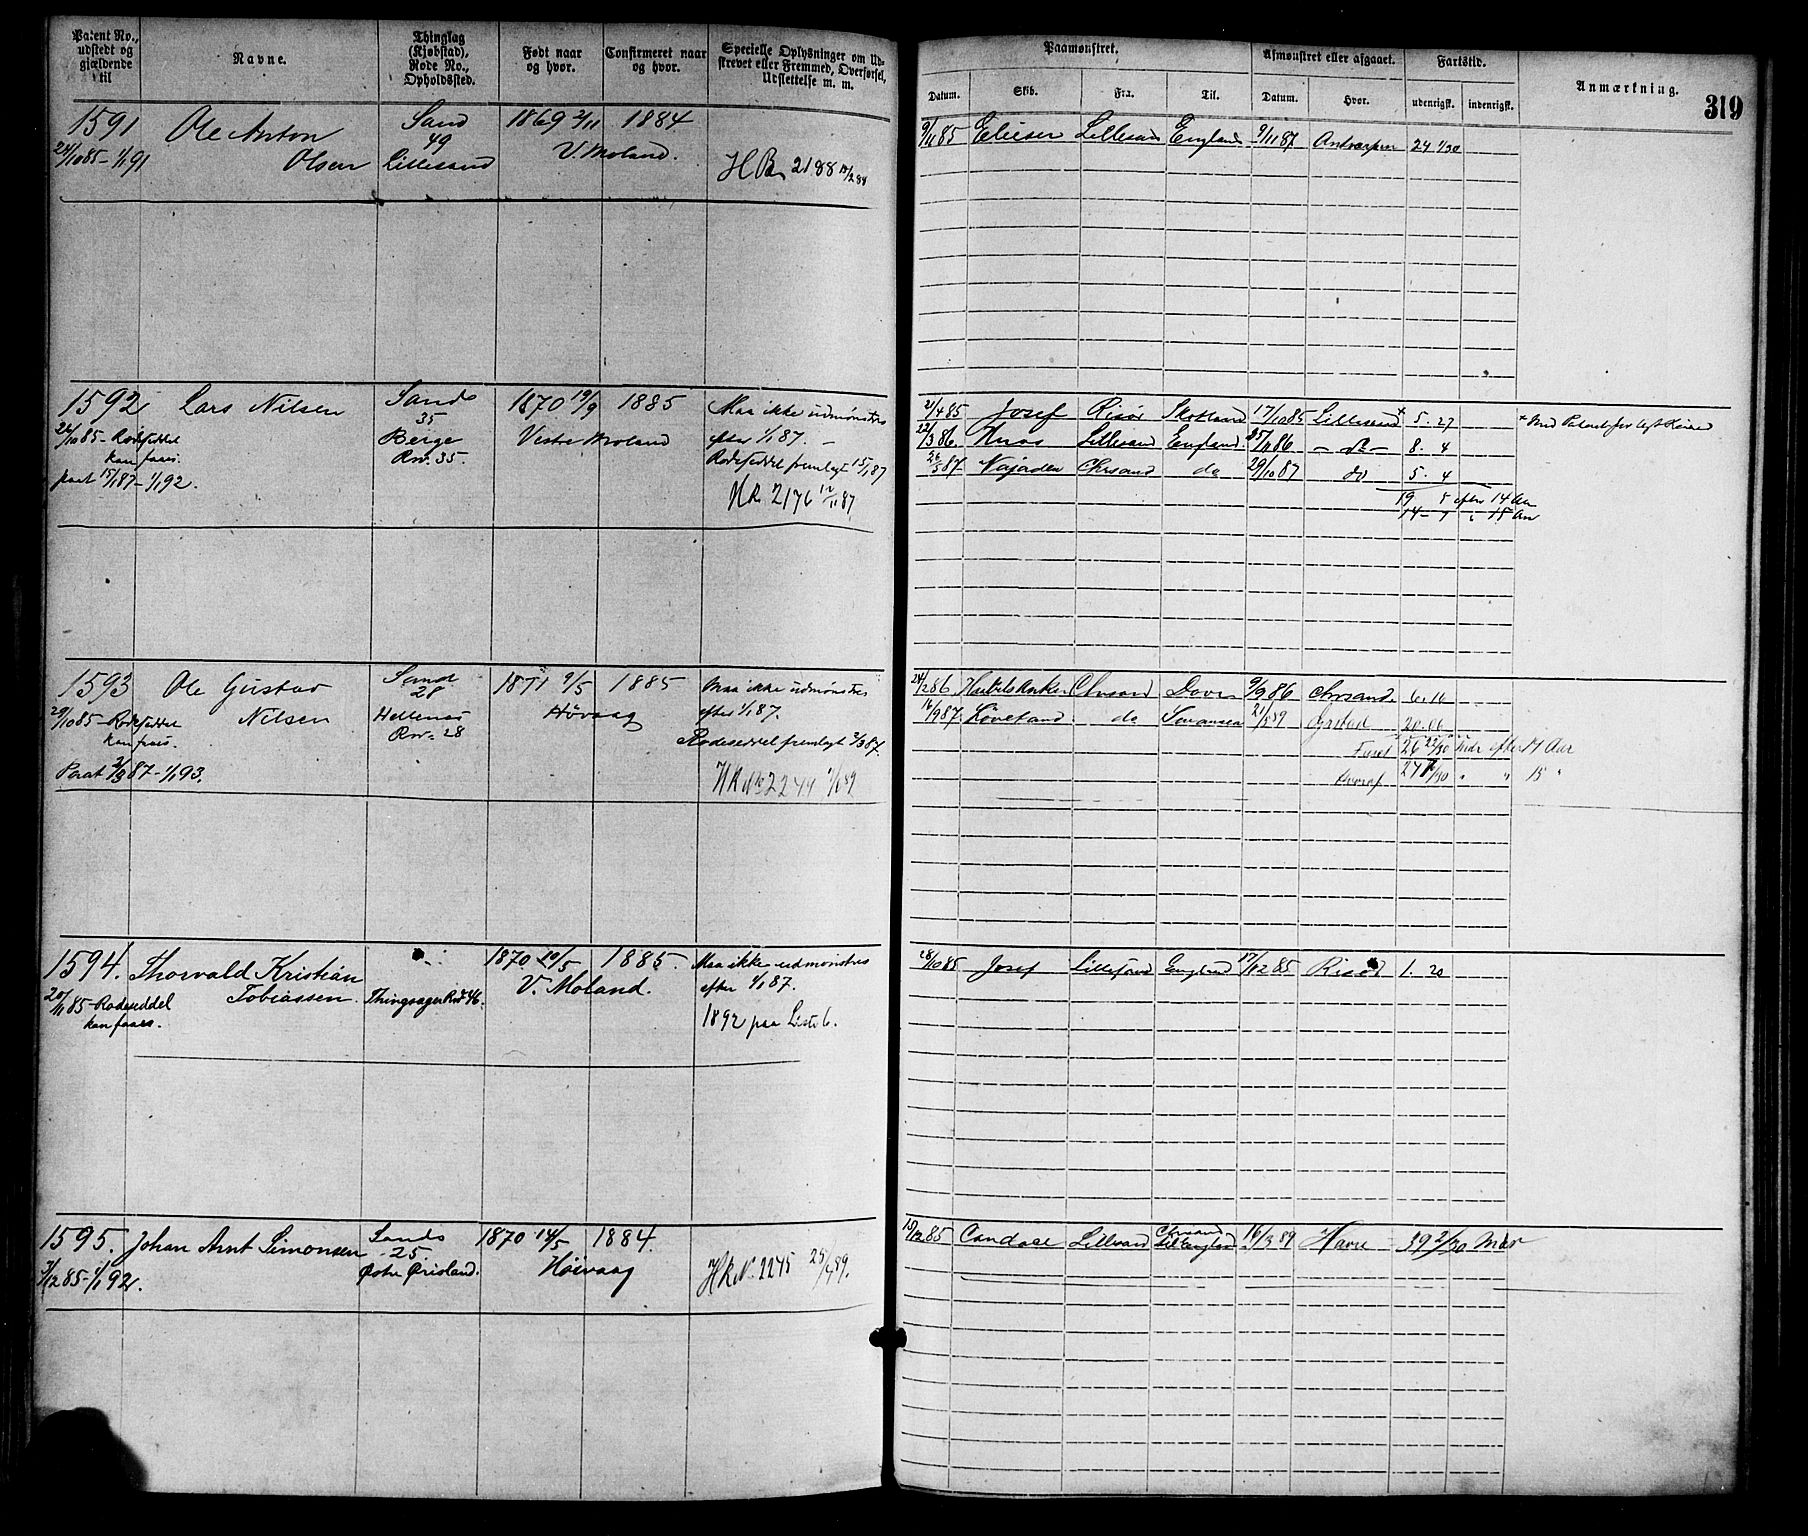 Patent No., udstedt og gjældende til
Navne.
Thinglag (Kjøbstad), Rode No., Opholdssted.
Født naar og hvor.
Confirmeret naar og hvor.
Specielle Oplysninger om Udskrevet eller Fremmed, Overførsel, Udslettelse m. m.
Paamønstret.
Datum. Skib. Fra. Til.
Afmønstret eller afgaaet.
Datum. Hvor.
Fartstid.
udenrigsk. indenrigsk.
Anmærkning.
319
1591 Ole Anton Sand 1869 2/11 1884
49
24/10 85 – 1/1 91 Olsen Lillesand V. Moland. H.R. 2188
9/11 85 Eliesen Lillesand England 9/11 87 Antverpen 24 1/30
1592 Lars Nilsen Sands 1870 19/9 1885 Maa ikke udmønstres
35
26/10 85 – Rodeseddel Berge Vestre Moland efter 1/1 87. –
kan faaes. Rno. 35. Rodeseddel fremlagt 15/1 87
paat 15/1 87 – 1/1 92. HR 2176 12/11 87
2/4 85 Josef Risør Skotland 17/10 85 Lillesand + 5. 27
22/3 86. Lillesand England. – do – 8. 4
26/3 87. Najaden Chrsand do 29/10 87 do 5. 4
19 5 efter 14 Aar
14 – 7 " 15 Aar
1593 Ole Gustav Sand 1871 9/5 1885 Maa ikke udmønstres
28
29/10 85 – Rodeseddel Nilsen Hellenes Høvaag efter 1/1 87.
kan faaes. Rno. 28 Rodeseddel fremlagt 2/3 87.
Paat 2/3 87 – 1/1 93. HR No 2249
24/2 86 Chrsand Dover 9/9 86 Chrsand. 6.16
16/9 87. Løvetand. do Swansea 20.06
26 22/30 Mdr efter 14 Aar
hvoraf " " 15 "
1594. Thorvald Kristian 1870 10/5 1885. Maa ikke udmønstres
Tobiassen. Thingsager Rno 46. V. Moland. efter 1/1 87.
20/11 85 – Rodeseddel
kan faaes. 1892 paa Liste 6.
28/10 85 Josef Lillesand England 17/12 85 Risør 1. 20
1595. Johan Arnt Simonsen Sands 1870 14/5 1884.
25.
7/12 85 – 1/1 92. Østre Ørisland. Höivaag HR N. 2275
15/12 85 Candace Lillesand Chrsand til England 16/3 89 Havre – 39 2/30 Mdr